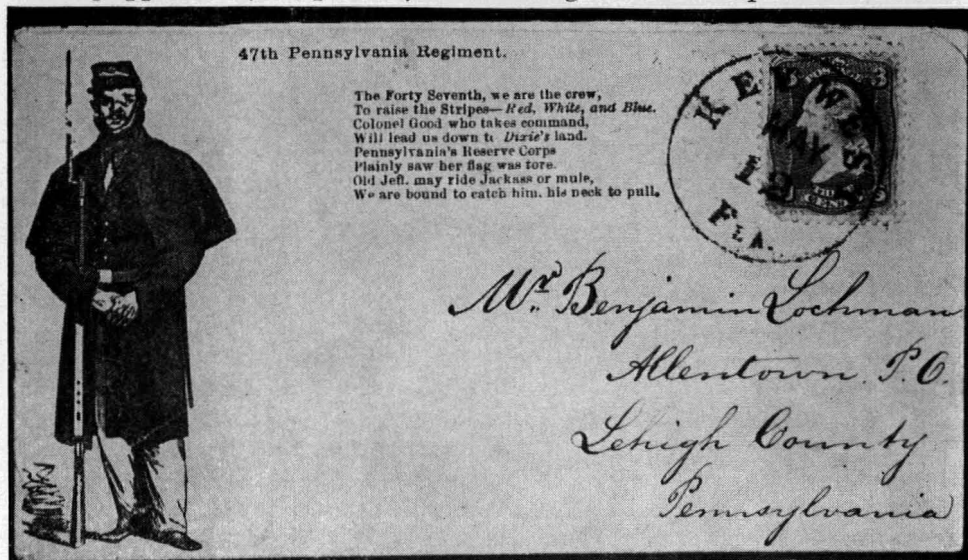 47th Pennsylvania Regiment.
The Forty Seventh, we are the crew,
To raise the Stripes—Red, White, and Blue.
Colonel Good who takes command,
Will lead us down to Dixie's land.
Pennsylvania's Reserve Corps
Plainly saw her flag was tore.
Old Jeff. may ride Jackass or mule,
We are bound to catch him, his neck to pull.
KEY WEST
MAY
12
FLA.
Mr. Benjamin Lochman
Allentown P.O.
Lehigh County
Pennsylvania